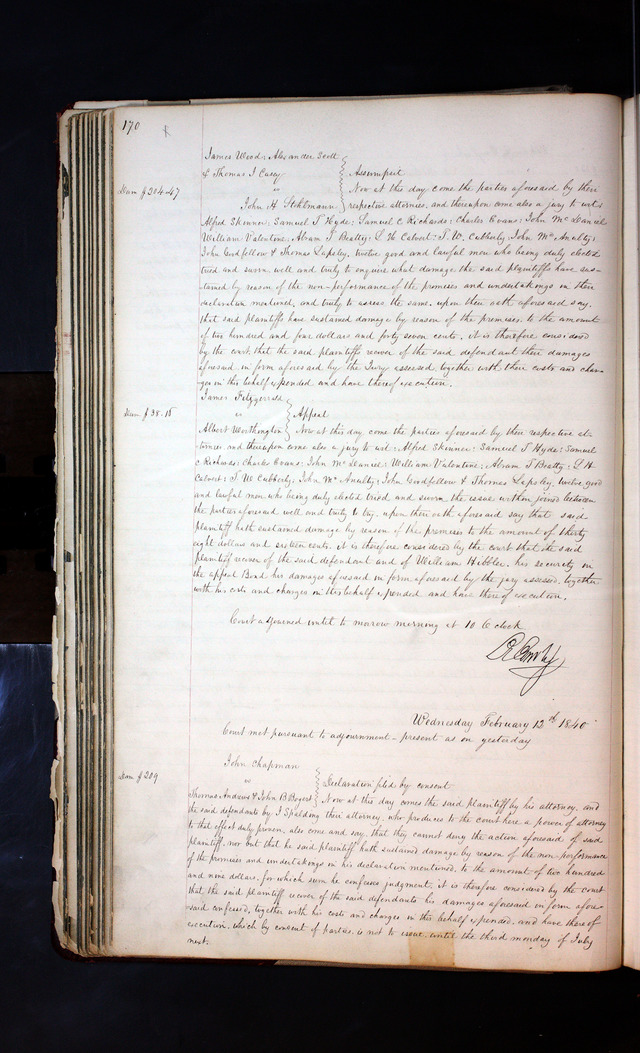 170
James Wood, Alexander Scott
& Thomas J Casey
vs
John H Stohlmann
Assumpsit
Dam $204.47
Now at this day come the parties aforesaid by their
respective attornies, and thereupon came also a jury to wit,
Alfred Skinner, Samuel T Hyde, Samuel C Richards, Charles Evans, John McDaniel
William Valentine, Abram T Beatty, L H Calvert, T. W. Cubberly, John McAnulty,
John Goodfellow & Thomas Lapsley, twelve good and lawful men who being duly elected
tried and sworn, well and truly to enquire what damage the said plaintiffs have sus-
tained by reason of the non-performance of the promises and undertakings in their
declaration mentioned, and truly to assess the same, upon their oath aforesaid say,
that said plaintiffs have sustained damage by reason of the premises, to the amount
of two hundred and four dollars and forty seven cents, it is therefore considered
by the court that the said plaintiffs recover of the said defendant their damages
aforesaid, in form aforesaid by the Jury assessed, together with their costs and char-
ges in this behalf expended and have thereof execution.
James Fitzgerald
vs
Albert Worthington
Appeal
Dam $38.16
Now at this day come the parties aforesaid by their respective at-
tornies and thereupon came also a jury to wit, Alfred Skinner, Samuel T Hyde, Samuel
C Richards, Charles Evans, John McDaniel, William Valentine, Abram T Beatty, L H
Calvert, T W Cubberly, John McAnulty, John Goodfellow & Thomas Lapsley, twelve good
and lawful men who being duly elected tried and sworn the issue within joined between
the parties aforesaid well and truly to try, upon their oath aforesaid say that said
plaintiff hath sustained damage by reason of the premises to the amount of thirty
eight dollars and sixteen cents, it is therefore considered by the court that the said
plaintiff recover of the said defendant and of William Hibbler, his security on
the appeal Bond his damages aforesaid in form aforesaid by the jury assessed, together
with his costs and charges in this behalf expended and have thereof execution.
Court adjourned until to morrow morning at 10 O'clock
Wednesday February 12th 1840
Court met pursuant to adjournment - present as on yesterday
John Chapman
vs
Thomas Andrews & John B Bogert
Declaration filed by consent
Dam $209
Now at this day comes the said plaintiff by his attorney, and
the said defendants by J Spalding their attorney, who produces to the court here a power of attorney
to that effect duly proven, also come and say, that they cannot deny the action aforesaid of said
plaintiff, nor but that he said plaintiff hath sustained damage by reason of the non-performance
of the promises and undertakings in his declaration mentioned, to the amount of two hundred
and nine dollars, for which sum he confesses judgment, it is therefore considered by the court
that the said plaintiff recover of the said defendants his damages aforesaid in form afore-
said confessed, together with his costs and charges in this behalf expended, and have thereof
execution, which by consent of parties, is not to issue until the third monday of July
next.